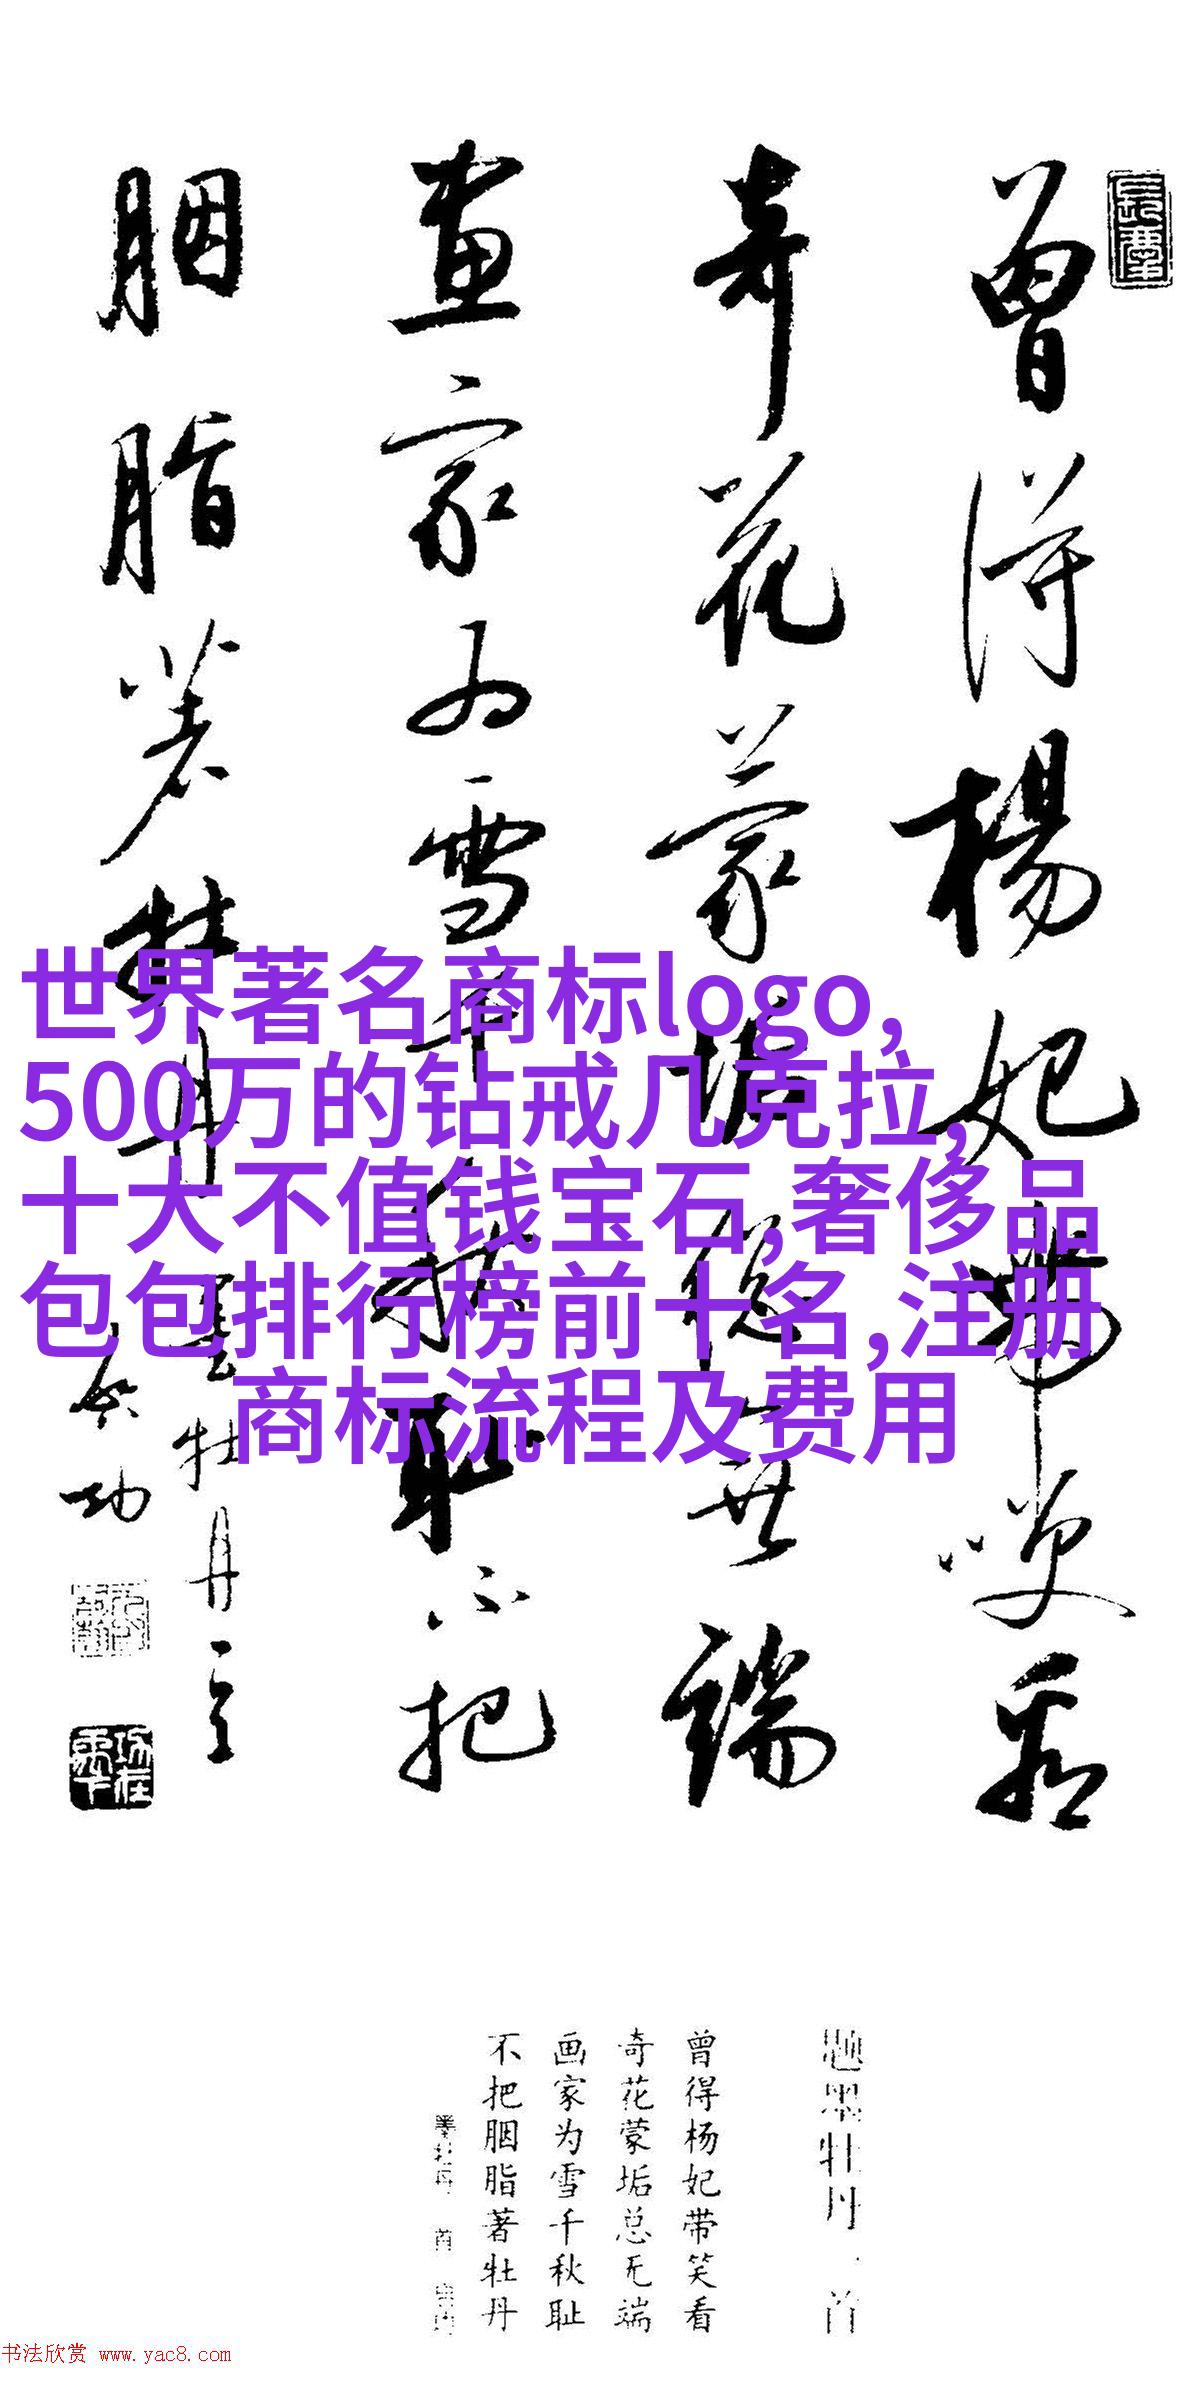 曾得楊妃帶笑看
奇花蒙垢總無端
畫家為雪千秋耻不把
胭脂著牡丹
墨牡丹之一
啟功
世界著名商标logo,
500万的钻戒几克拉,
十大不值钱宝石,奢侈品
包包排行榜前十名,注册
商标流程及费用
题墨牡丹一首
曾得杨妃带笑看
奇花蒙垢总无端
画家为雪千秋耻
不把胭脂著牡丹
书法欣赏 www.yac8.com